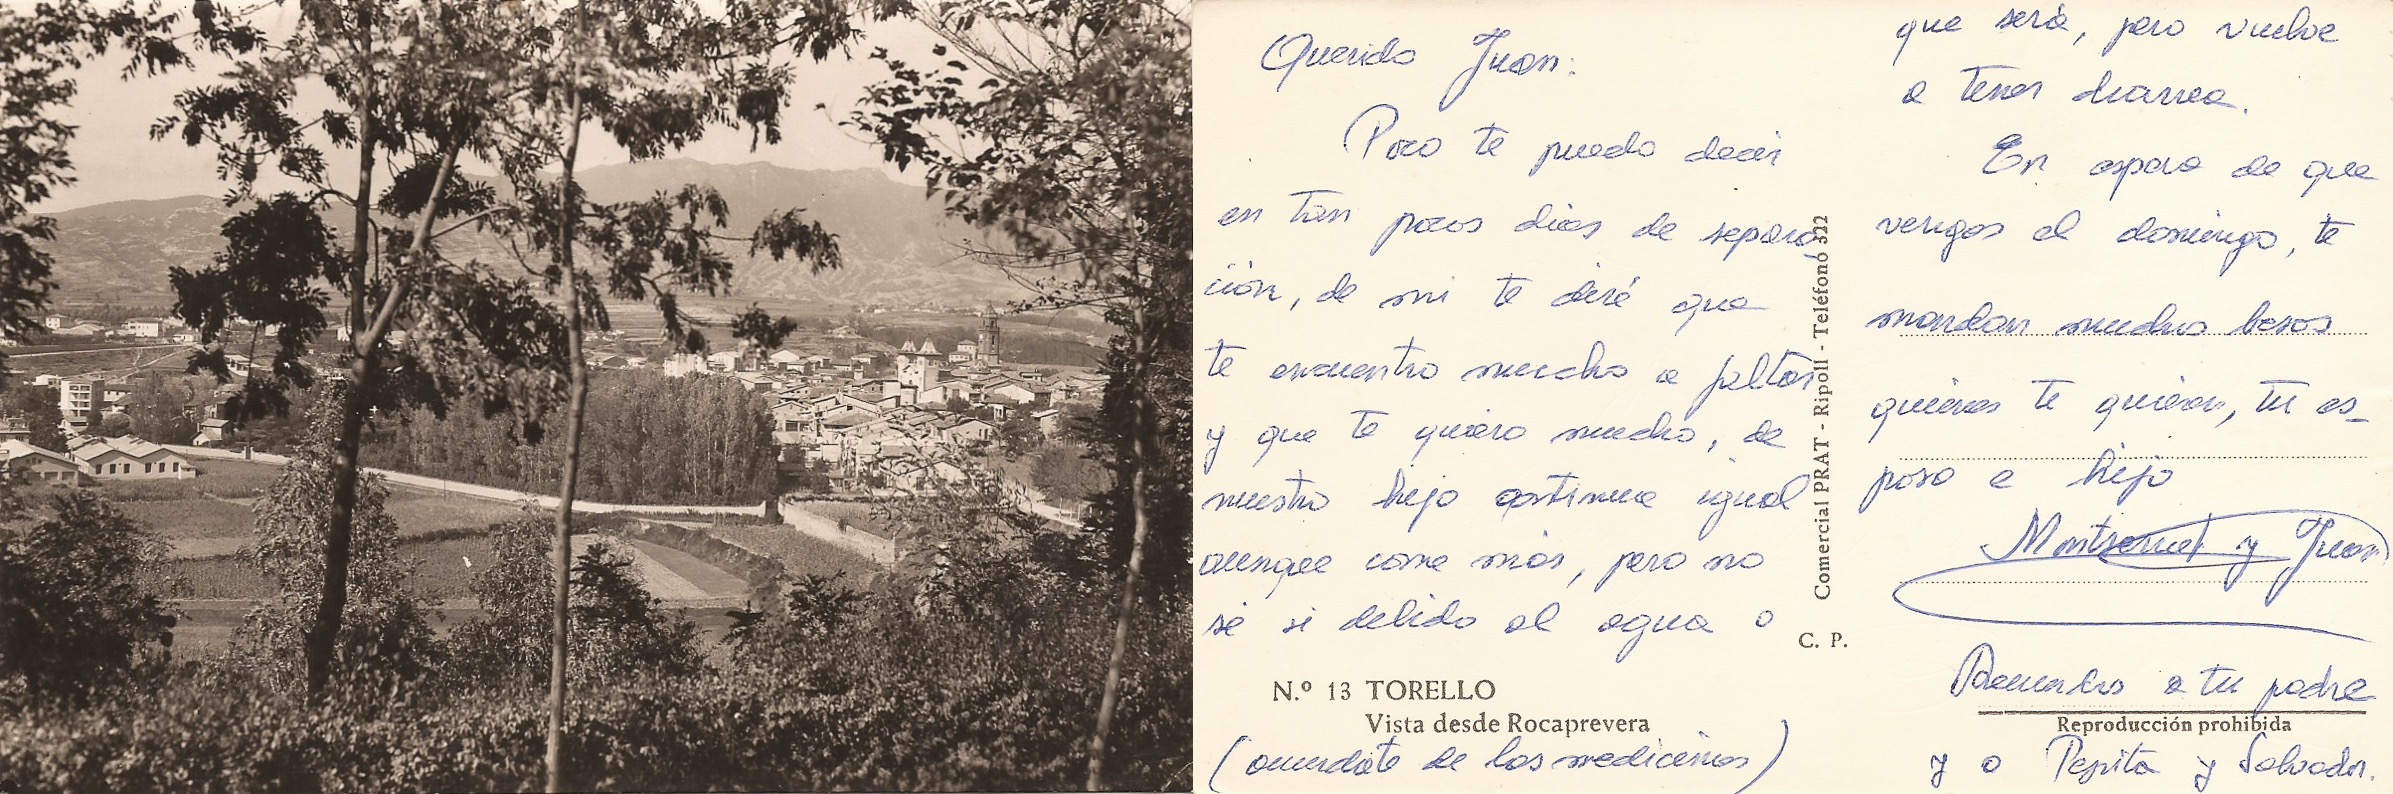 Querido Juan:
Poco te puedo decir
en tan pocos dias de separa
ción, de mi te diré que
te encuentro mucho a faltar
y que te quiero mucho, de
nuestro hijo continua igual
aunque come más, pero no
sé si debido al agua o
N.º 13 TORELLO
Vista desde Rocaprevera
(acuerdate de las medicinas)
Comercial PRAT - Ripoll - Teléfono 322
C. P.
que será, pero vuelve
a tener diarrea.
En espera de que
vengas el domingo, te
mandan muchos besos
quienes te quieren, tu es-
posa e hijo
Montserrat y Juan
Recuerdos a tu padre
Reproducción prohibida
y a Pepita y Salvador.